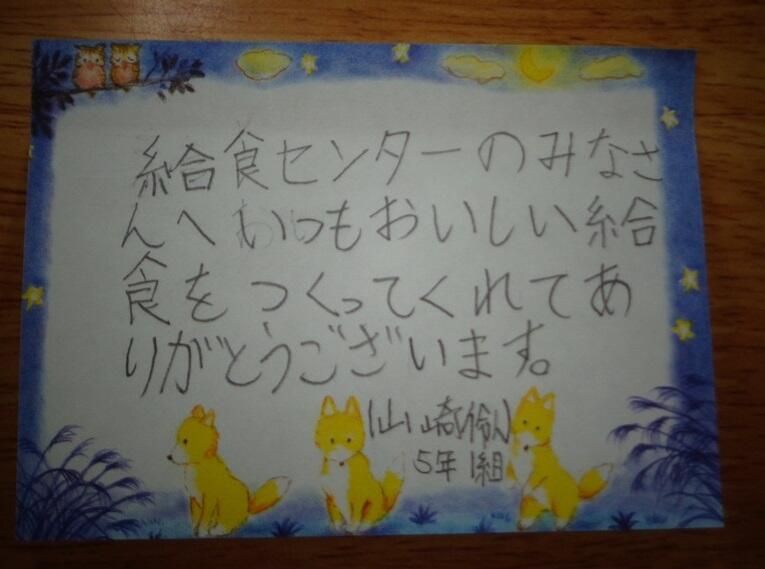 給食センターのみなさ
んへいつもおいしい給
食をつくってくれてあ
りがとうございます。
(山崎伶)
5年1組